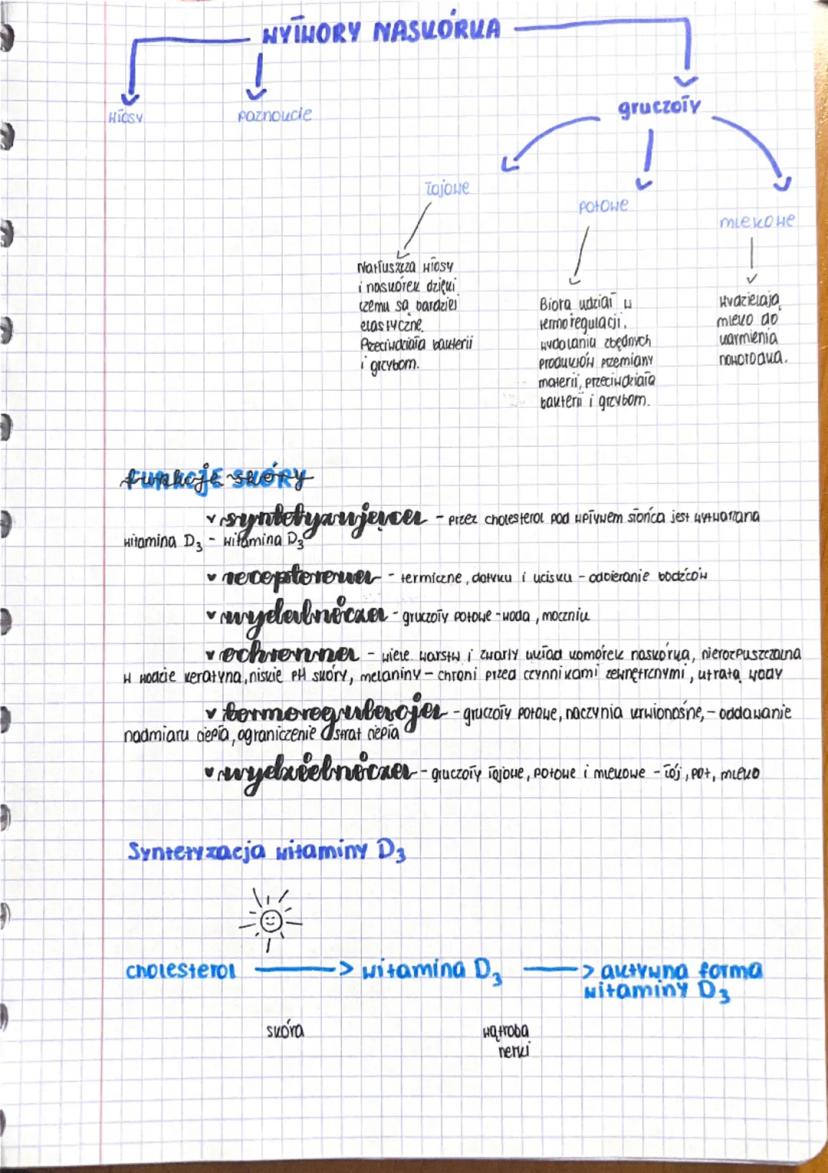 WYTWORY NASKÓRKA
włosy
paznokcie
gruczoły
łojowe
potowe
mlekowe
Natłuszcza włosy
i naskórek dzięki
czemu są bardziej
elastyczne.
Przeciwdziała bakterii
i grzybom.
Biorą udział w
termoregulacji,
wydalaniu zbędnych
produktów przemiany
materii, przeciwdziała
bakterii i grzybom.
Wydzielają
mleko do
karmienia
noworodka.
FUNKCJE SKÓRY
syntetyzująca - przez cholesterol pod wpływem słońca jest wytwarzana
witamina D3 - witamina D3
receptorowa - termiczne, dotyku i ucisku - odbieranie bodźców
wydalnicza - gruczoły potowe - woda, mocznik
ochronna - wiele warstw i zwarty układ komórek naskórka, nierozpuszczalna
w wodzie keratyna, niskie pH skóry, melaniny - chroni przed czynnikami zewnętrznymi, utratą wody
termoregulacja - gruczoły potowe, naczynia krwionośne, - oddawanie
nadmiaru ciepła, ograniczenie strat ciepła
wydzielnicza - gruczoły łojowe, potowe i mlekowe - łój, pot, mleko
Syntetyzacja witaminy D3
cholesterol -> witamina D3 -> aktywna forma
witaminy D3
skóra
wątroba
nerki